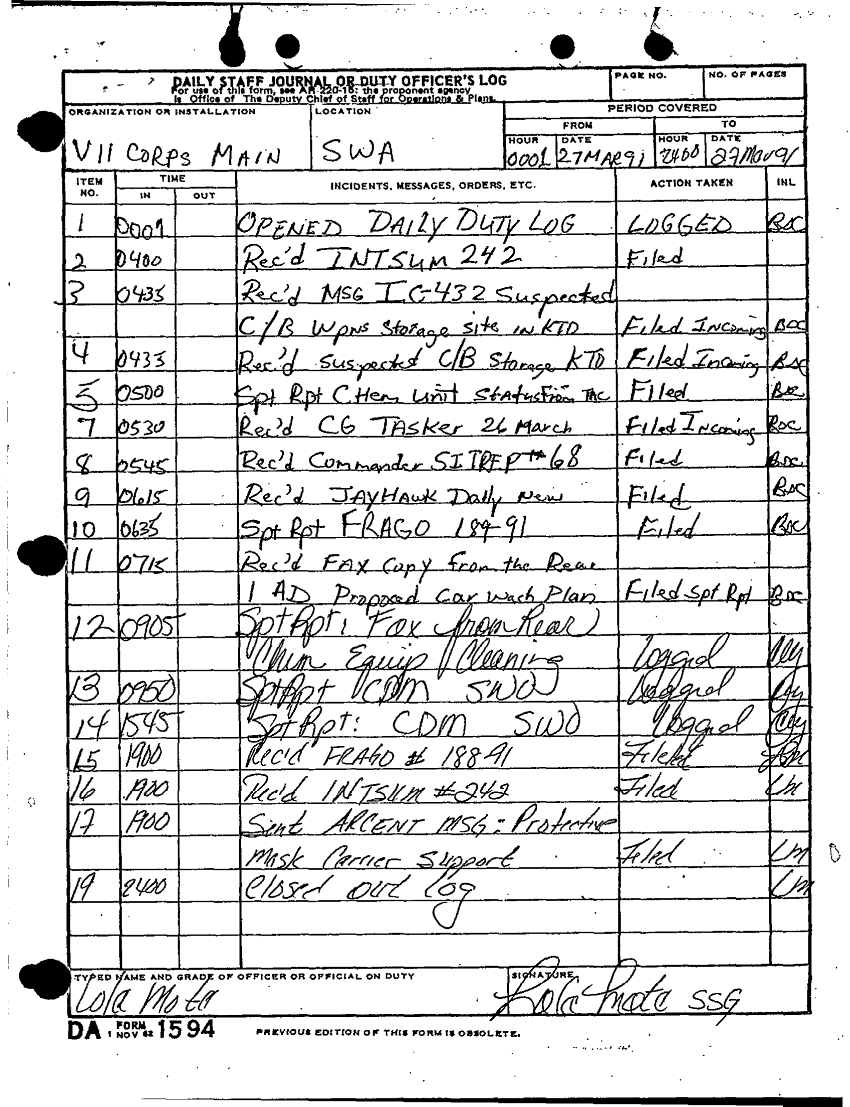 DAILY STAFF JOURNAL OR DUTY OFFICER'S LOG
For use of this form, see AR 220-15; the proponent agency
is Office of The Deputy Chief of Staff for Operations & Plans.
PAGE NO.
NO. OF PAGES
ORGANIZATION OR INSTALLATION
LOCATION
PERIOD COVERED
FROM
TO
HOUR DATE HOUR DATE
VII CORPS MAIN SWA 0001 27MAR91 2400 27Mar91
ITEM NO. TIME INCIDENTS, MESSAGES, ORDERS, ETC. ACTION TAKEN INL
IN OUT
1 0001 OPENED DAILY DUTY LOG LOGGED BDC
2 0400 Rec'd INTSUM 242 Filed
3 0435 Rec'd MSG IC-432 Suspected
C/B Wpns Storage site in KTO Filed Incoming BDC
4 0435 Rec'd suspected C/B Storage KTO Filed Incoming BDC
5 0500 Spt Rpt CHem Unit Status From TAC Filed BDC
7 0530 Rec'd CG TASKer 26 March Filed Incoming BDC
8 0545 Rec'd Commander SITREP #68 Filed BDC
9 0615 Rec'd JAYHAWK Daily New Filed BDC
10 0635 Spt Rpt FRAGO 189-91 Filed BDC
11 0715 Rec'd FAX Copy from the Rear
1 AD Proposed Car Wash Plan Filed Spt Rpt BDC
12 0905 Spt Rpt: Fax from Rear
Chem Equip Cleaning logged
13 0950 Spt Rpt CDM SWO logged
14 1545 Spt Rpt: CDM SWO logged
15 1900 Rec'd FRAGO # 188-91 Filed Lm
16 1900 Rec'd INTSUM #242 Filed Lm
17 1900 Sent ARCENT MSG: Protective
Mask Carrier Support Filed Lm
19 2400 Closed out log Lm
TYPED NAME AND GRADE OF OFFICER OR OFFICIAL ON DUTY
SIGNATURE
Lola Mota Lola Mota SSG
DA FORM 1 NOV 62 1594 PREVIOUS EDITION OF THIS FORM IS OBSOLETE.